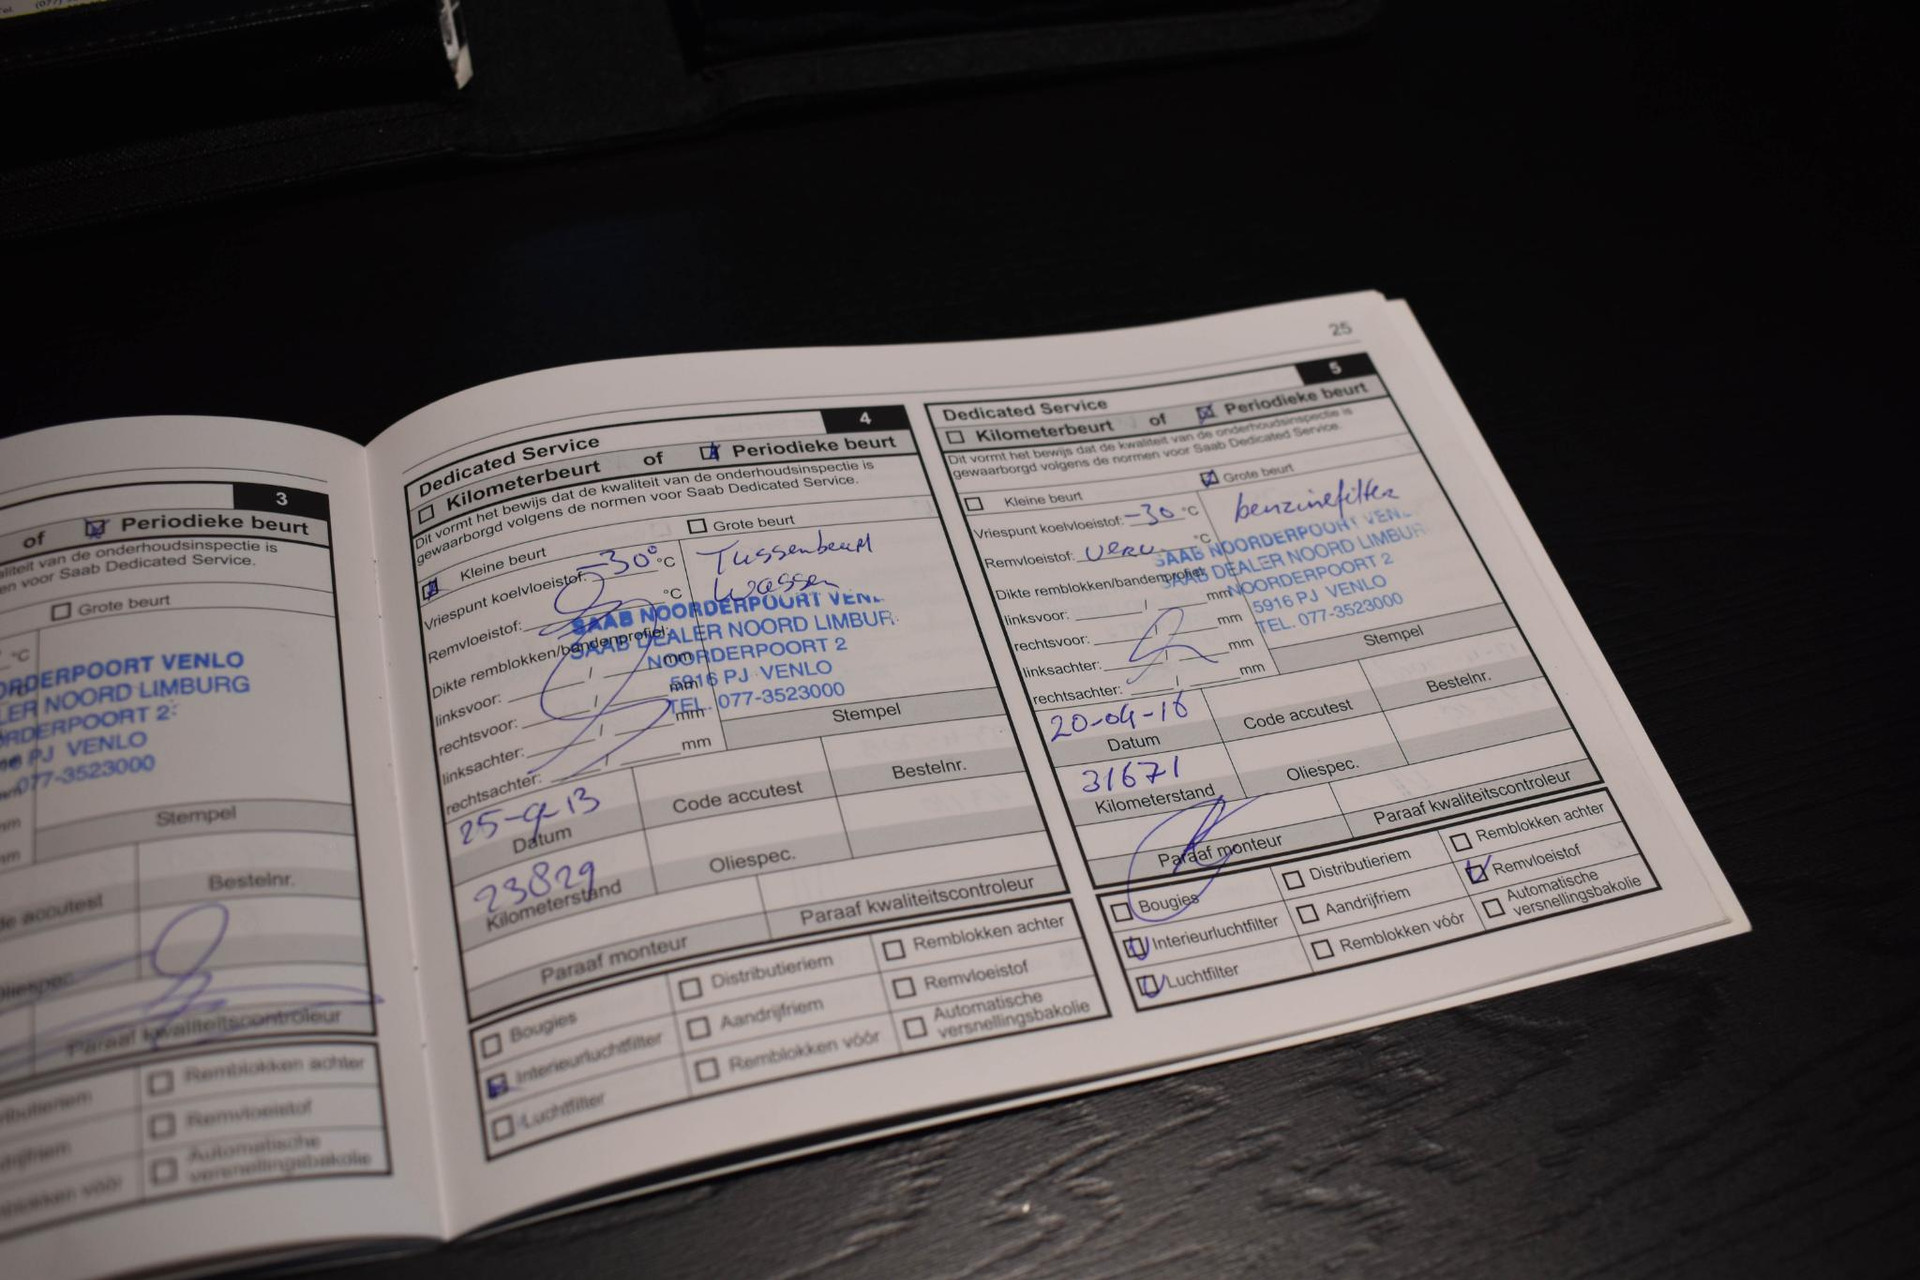 25
3
of Periodieke beurt
kwaliteit van de onderhoudsinspectie is
en voor Saab Dedicated Service.
Grote beurt
°C
ORDERPOORT VENLO
LER NOORD LIMBURG
ORDERPOORT 2
PJ VENLO
077-3523000
mm
Stempel
mm
de accutest
Bestelnr.
Oliespec.
Paraaf kwaliteitscontroleur
Remblokken achter
Remvloeistof
Automatische
versnellingsbakolie
4
Dedicated Service
Kilometerbeurt of Periodieke beurt
Dit vormt het bewijs dat de kwaliteit van de onderhoudsinspectie is
gewaarborgd volgens de normen voor Saab Dedicated Service.
Kleine beurt Grote beurt
Vriespunt koelvloeistof: -30° °C Tussenbeurt
Remvloeistof: °C Wassen
SAAB NOORDERPOORT VENL
Dikte remblokken/bandenprofiel:
SAAB DEALER NOORD LIMBUR
NOORDERPOORT 2
linksvoor: / mm
5916 PJ VENLO
rechtsvoor: / mm
TEL. 077-3523000
linksachter: / mm
rechtsachter: / mm
Stempel
25-9-13
Datum Code accutest Bestelnr.
23829
Kilometerstand Oliespec.
Paraaf monteur Paraaf kwaliteitscontroleur
Bougies Distributieriem Remblokken achter
Interieurluchtfilter Aandrijfriem Remvloeistof
Luchtfilter Remblokken vóór Automatische
versnellingsbakolie
5
Dedicated Service
Kilometerbeurt of Periodieke beurt
Dit vormt het bewijs dat de kwaliteit van de onderhoudsinspectie is
gewaarborgd volgens de normen voor Saab Dedicated Service.
Kleine beurt Grote beurt
Vriespunt koelvloeistof: -30 °C benzinefilter
Remvloeistof: °C
SAAB NOORDERPOORT VEN
Dikte remblokken/bandenprofiel:
SAAB DEALER NOORD LIMBUR
NOORDERPOORT 2
linksvoor: / mm
5916 PJ VENLO
rechtsvoor: / mm
TEL. 077-3523000
linksachter: / mm
rechtsachter: / mm
Stempel
20-04-16
Datum Code accutest Bestelnr.
31671
Kilometerstand Oliespec.
Paraaf monteur Paraaf kwaliteitscontroleur
Bougies Distributieriem Remblokken achter
Interieurluchtfilter Aandrijfriem Remvloeistof
Luchtfilter Remblokken vóór Automatische
versnellingsbakolie